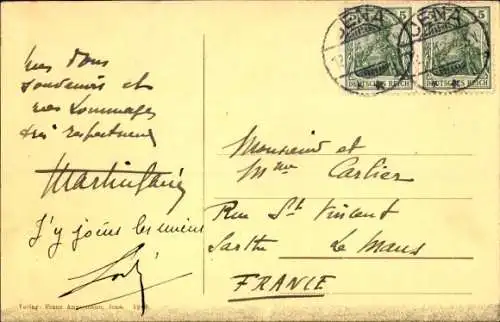 mes bons
souvenirs et
mes hommages
très respectueux
J'y joins les miens
JENA
JENA
5
5
DEUTSCHES REICH
DEUTSCHES REICH
Monsieur et
Mme Cartier
Rue St Vincent
Sarthe Le Mans
FRANCE
Verlag: Franz Angermann, Jena.